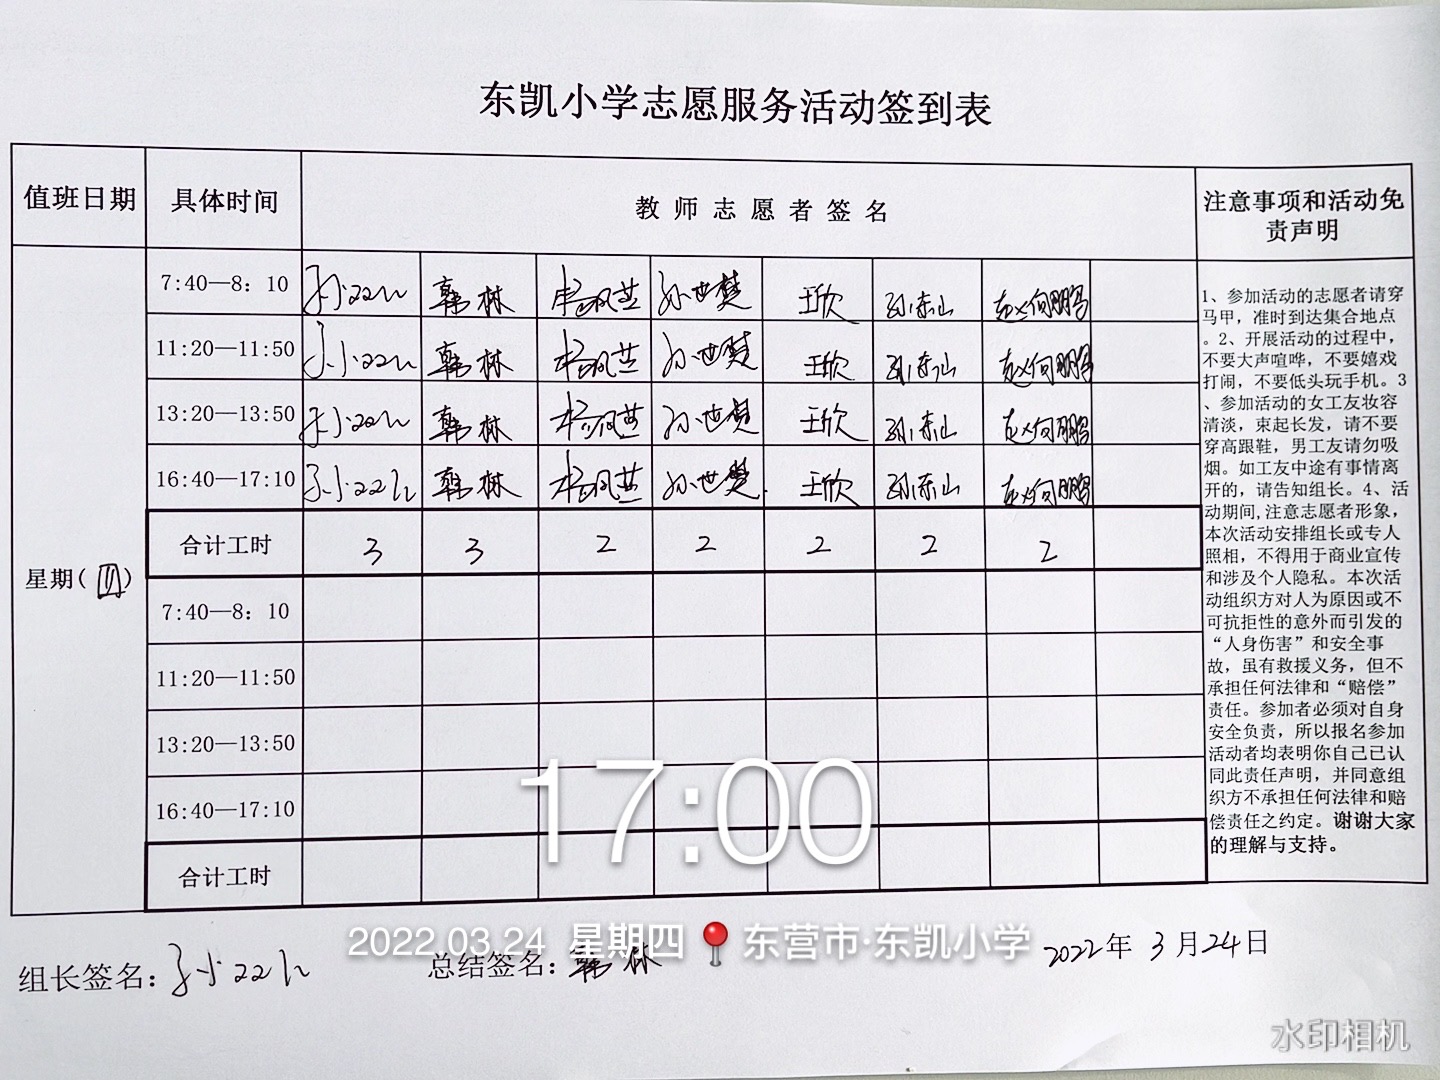 东凯小学志愿服务活动签到表
值班日期 具体时间 教师志愿者签名 注意事项和活动免责声明
星期(四)
7:40—8：10 韩林 孙世楚 王欣 孙东山 赵何鹏
11:20—11:50 韩林 孙世楚 王欣 孙东山 赵何鹏
13:20—13:50 韩林 孙世楚 王欣 孙东山 赵何鹏
16:40—17:10 韩林 孙世楚 王欣 孙东山 赵何鹏
合计工时 3 3 2 2 2 2 2
7:40—8：10
11:20—11:50
13:20—13:50
16:40—17:10
合计工时
1、参加活动的志愿者请穿
马甲，准时到达集合地点
。2、开展活动的过程中，
不要大声喧哗，不要嬉戏
打闹，不要低头玩手机。3
、参加活动的女工友妆容
清淡，束起长发，请不要
穿高跟鞋，男工友请勿吸
烟。如工友中途有事情离
开的，请告知组长。4、活
动期间,注意志愿者形象，
本次活动安排组长或专人
照相，不得用于商业宣传
和涉及个人隐私。本次活
动组织方对人为原因或不
可抗拒性的意外而引发的
“人身伤害”和安全事
故，虽有救援义务，但不
承担任何法律和“赔偿”
责任。参加者必须对自身
安全负责，所以报名参加
活动者均表明你自己已认
同此责任声明，并同意组
织方不承担任何法律和赔
偿责任之约定。谢谢大家
的理解与支持。
17:00
2022.03.24 星期四 东营市·东凯小学
组长签名： 总结签名：韩林 2022年3月24日
水印相机